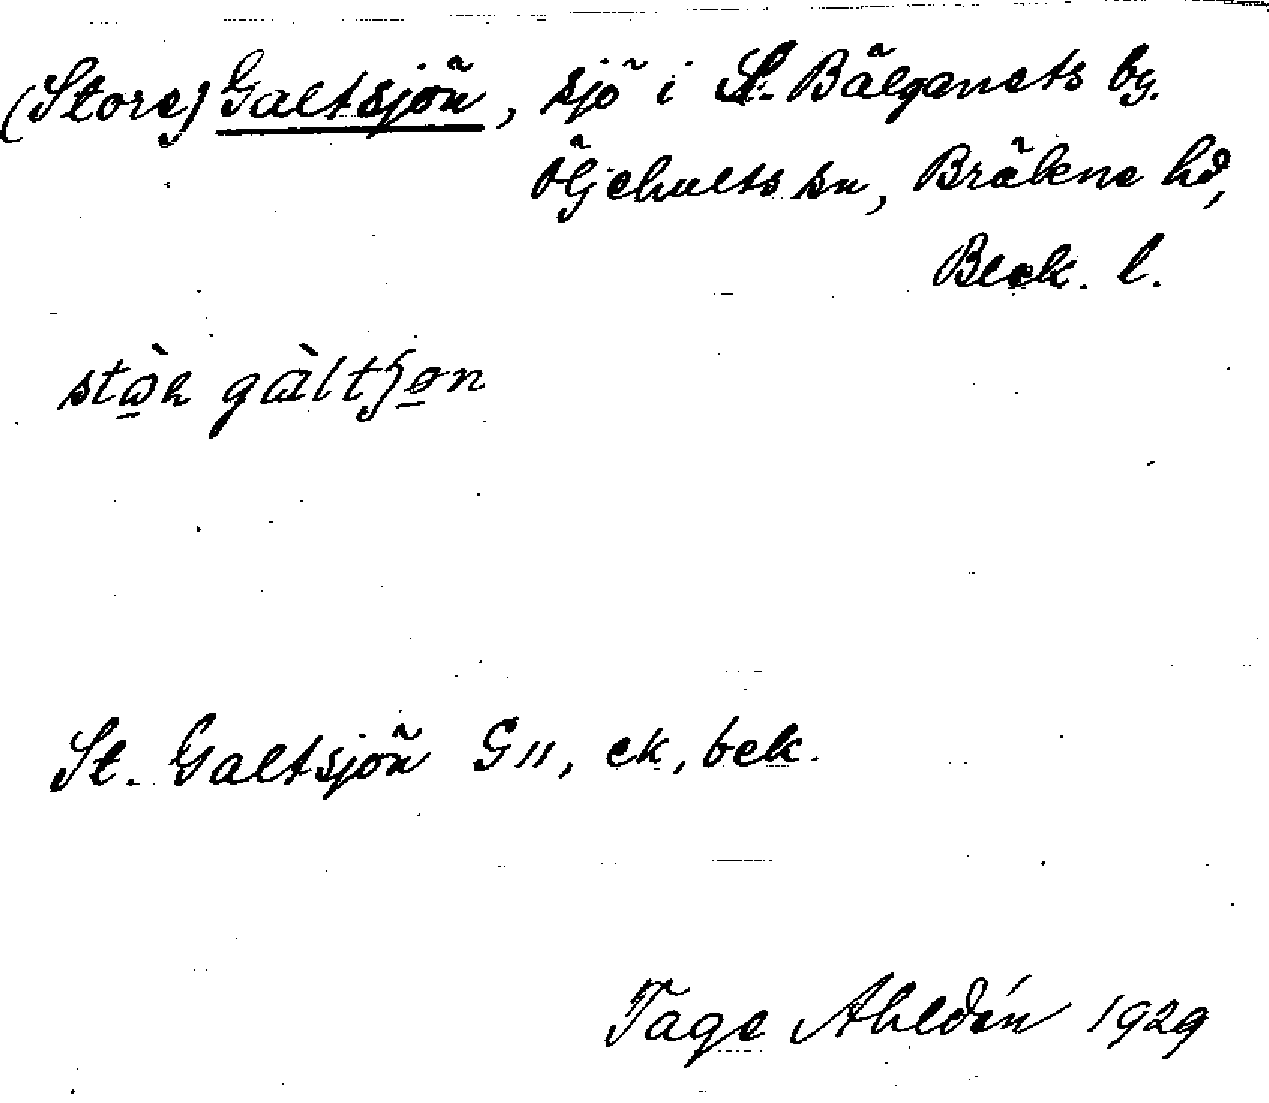 (Store) Galtsjön, sjö i St. Bälganets by.
Öljehults sn, Bräkne hd,
Blek. l.
St. Galtsjön G11, ek, bek.
Tage Ahldén 1929